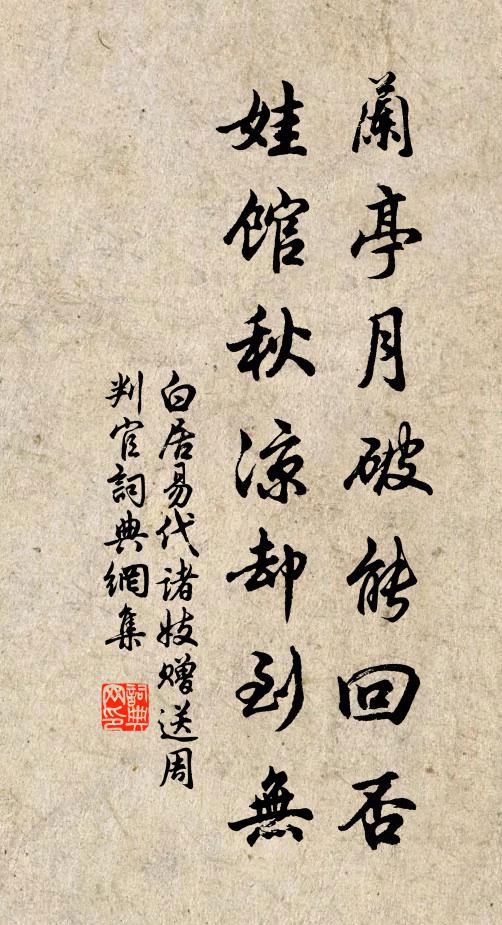 蘭亭月破能回否
娃馆秋涼却到無
白居易代诸妓赠送周
判官詞典網集
詞典
网印